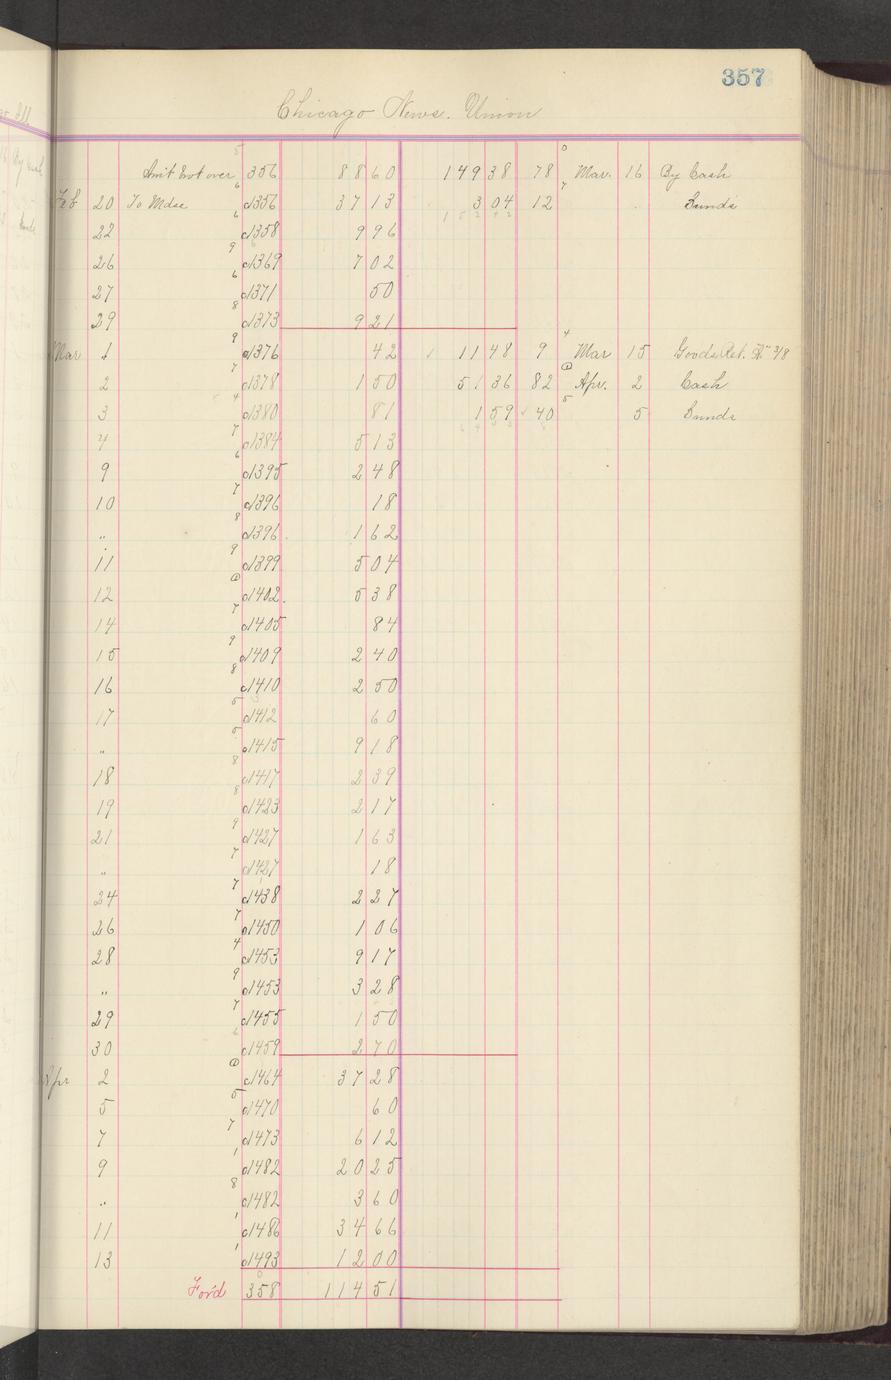 357
Chicago News. Union
Am't bro't over 356 88 60 149 38 78 Mar. 16 By Cash
Feb 20 To Mdse d1356 37 13 3 04 12 Sunds
22 d1358 9 96
26 d1369 7 02
27 d1371 50
29 d1373 9 21
Mar 1 d1376 42 11 48 9 Mar 15 Goods Ret. 3/8
2 d1378 1 50 51 36 82 Apr. 2 Cash
3 d1380 81 1 59 40 5 Sunds
4 d1384 5 13
9 d1395 2 48
10 d1396 18
" d1396 1 62
11 d1399 5 04
12 d1402 5 38
14 d1405 84
15 d1409 2 40
16 d1410 2 50
17 d1412 60
" d1415 9 18
18 d1417 2 39
19 d1423 2 17
21 d1427 1 63
" d1427 18
24 d1438 2 27
26 d1450 1 06
28 d1453 9 17
" d1453 3 28
29 d1455 1 50
30 d1459 2 70
Apr 2 d1464 37 28
5 d1470 60
7 d1473 6 12
9 d1482 20 25
" d1482 3 60
11 d1486 34 66
13 d1493 12 00
For'd 358 114 51